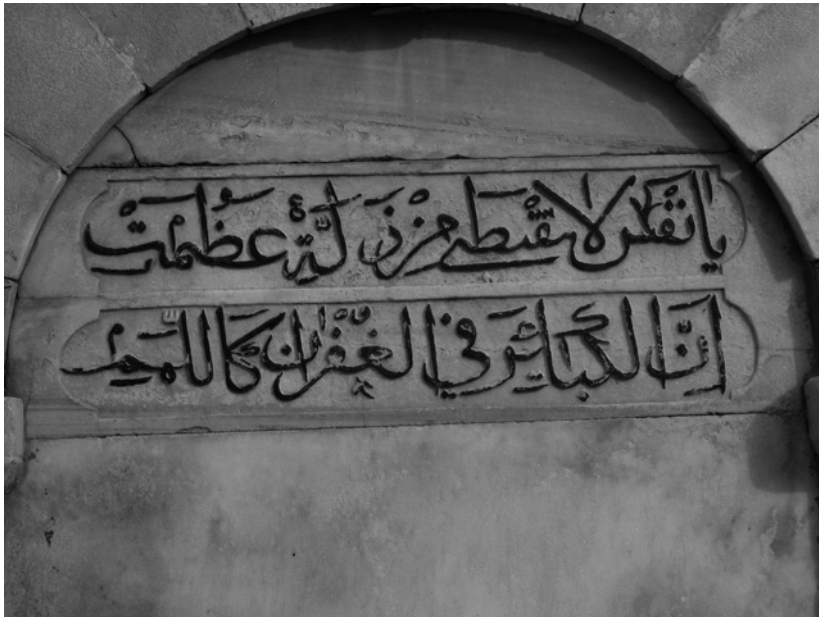 يا نفس لا تقنطي من زلة عظمت
ان الكبائر في الغفران كاللمم